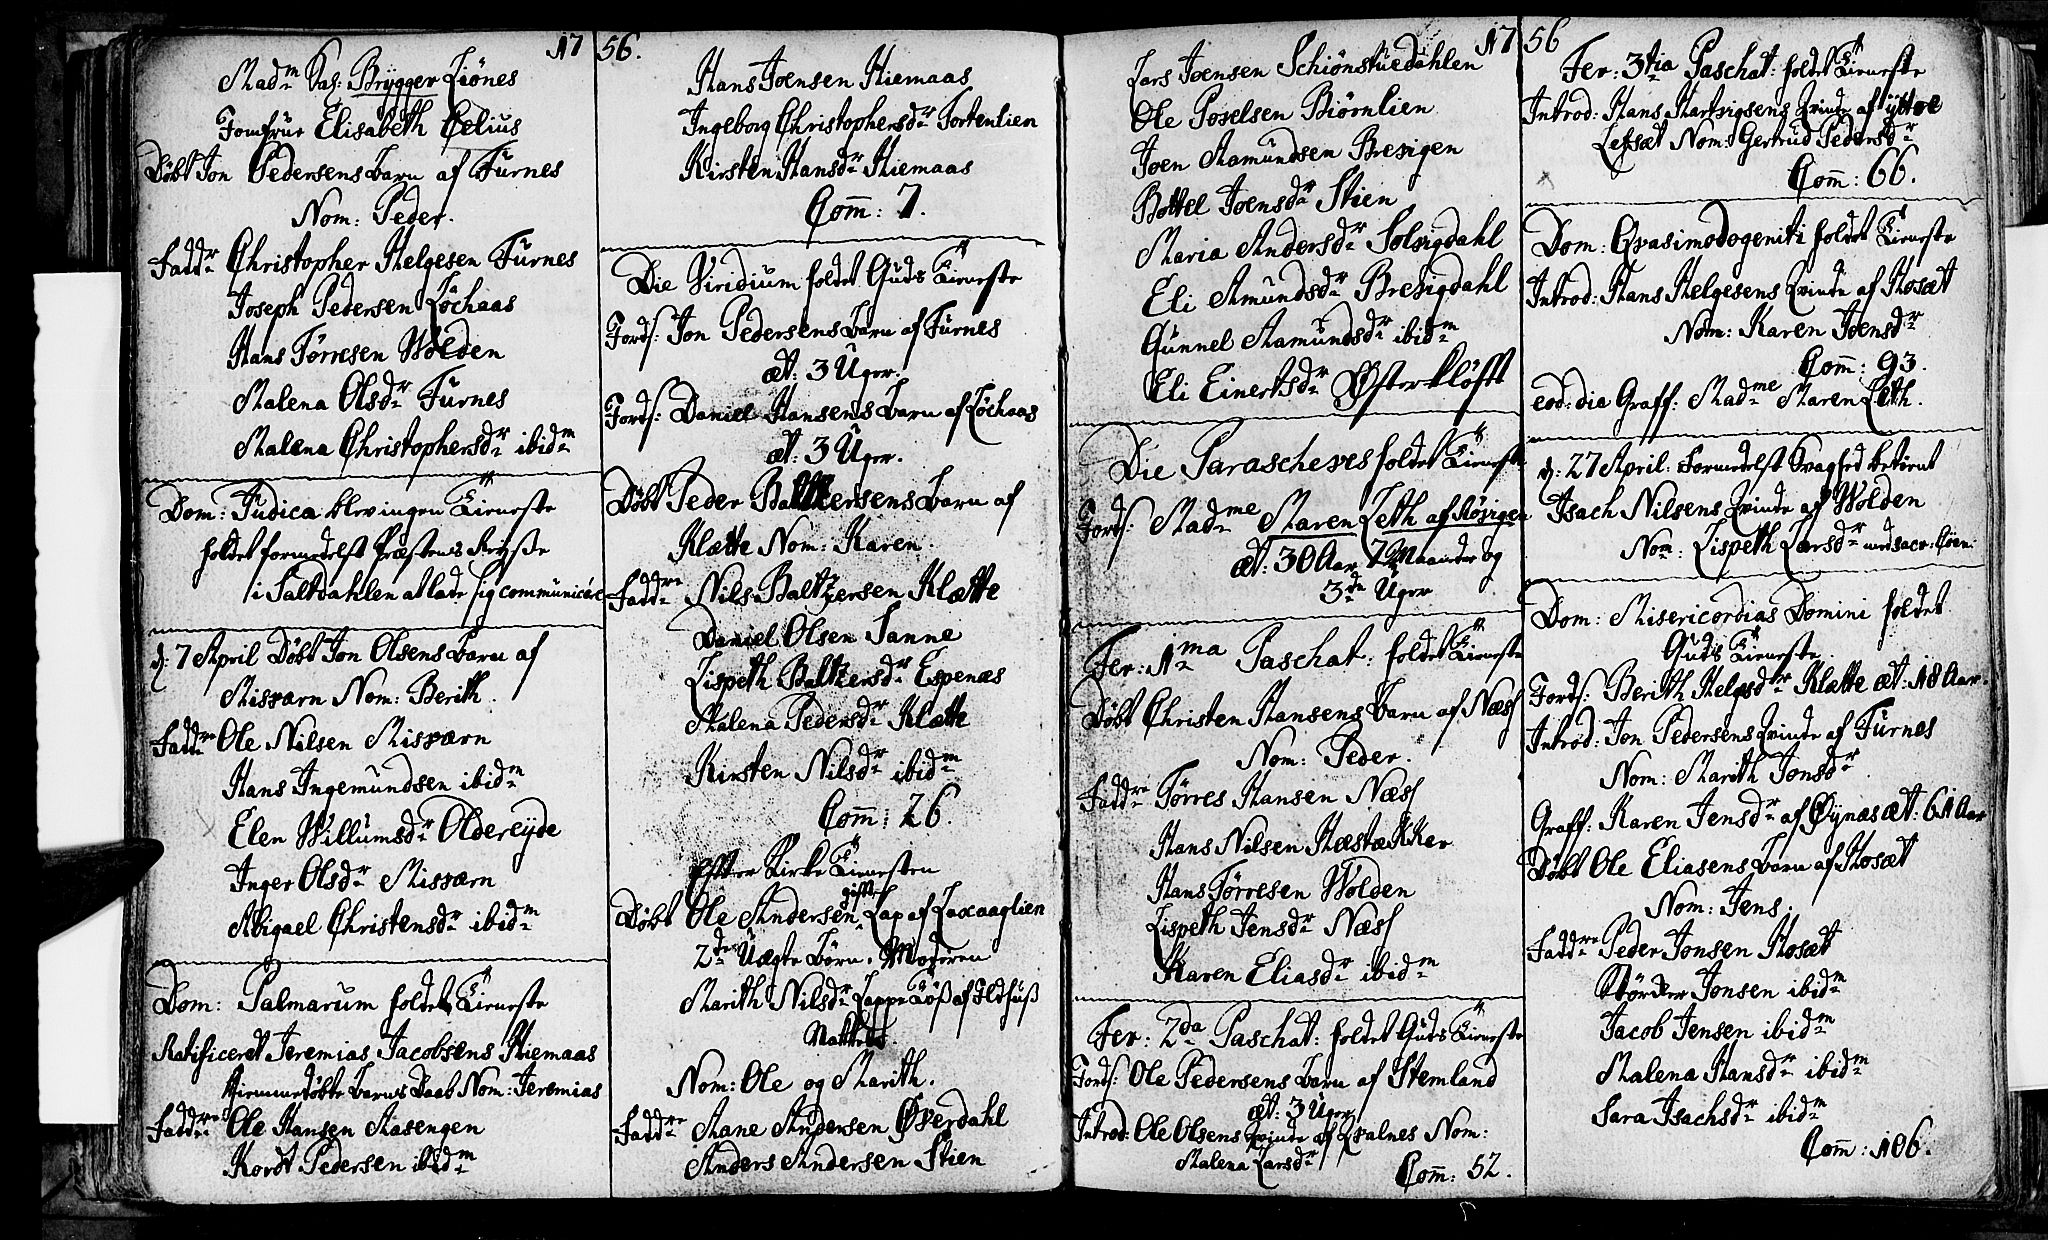 1756.
Madm Sal: Brygger Liönes
Jomfrue Elisabeth Celius
Döbt Jon Pedersens barn af Furnes
Nom: Peder.
Faddr Christopher Helgesen Furnes
Joseph Pedersen Löchaas
Hans Törresen Wolden
Malena Olsdr Furnes
Malena Christophersdr ibidm
Dom: Judica blev ingen Tieneste
holdet formedelst Præstens Reysse
i Saltdahlen at lade sig communicere
d: 7 April Döbt Jon Olsens barn af
Misværn Nom: Berith.
Faddre Ole Nilsen Misværn
Hans Ingemundsen ibidm
Elen Willumsdr Oldereyde
Inger Olsdr Misværn
Abigael Christensdr ibidm
Dom: Palmarum holdet Tieneste
Ratificeret Jeremias Jacobsens Hiemaas
hiemmedöbte barns daab Nom: Jeremias
Faddre Ole Hansen Aasengen
Kordt Pedersen ibidm
Hans Joensen Hiemaas
Ingeborg Christophersdr Tortenlien
Kirsten Hansdr Hiemaas
Com: 7.
Die Viridium holdet Guds Tieneste
Jords: Jon Pedersens barn af Furnes
æt: 3 Uger.
Jords: Daniel Hansens barn af Löchaas
æt: 3 Uger.
Döbt Peder Baltzersens barn af
Klætte Nom: Karen.
Faddre Nils Baltzersen Klætte
Daniel Olsen Sanne
Lispeth Baltzersdr Espenæs
Malena Pedersdr Klætte
Kirsten Nilsdr ibidm
Com: 26.
Efter Kirke Tienesten
Döbt Ole Andersen gift Lap af Laxaaglien
2de Uægte börn. Moderen
Marith Nilsdr Lappe Töß af
Nom: Ole og Marith.
Faddre Aane Andersen Överdahl
Anders Andersen Stien
1756
Lars Joensen Schiönstuedahlen
Ole Povelsen Biörnlien
Joen Aamundsen Brevigen
Bottel Joensdr Stien
Maria Andersdr Solvigdahl
Eli Amundsdr Brevigdahl
Gunnel Aamundsdr ibidm
Eli Einertsdr Österklöft
Die Parascheves holdet Tieneste
Jords: Madme Maren Leth af Røvigen
æt: 30 Aar 7 Maaneder og
3de Uger
Fer: 1ma Paschat: holdet Tieneste
Döbt Christen Hansens barn af Næss
Nom: Peder.
Faddre Törres Hansen Næss
Hans Nilsen Hæstækker
Hans Törresen Wolden
Lispeth Jensdr Næss
Karen Eliasdr ibidm
Fer: 2da Paschat: holdet Guds Tieneste
Jords: Ole Pedersens barn af Stemland
æt: 3 Uger
Introd: Ole Olsens Qvinde af Qvalnes Nom:
Malena Larsdr
Com: 52.
Fer: 3tia Paschat: holdet Tieneste
Introd: Hans Hartvigsens Qvinde af Yttre
Lexsæt Nom: Gertrud Pedersdr
Com: 66.
Dom: Qvasimodogeniti holdet Tieneste
Introd: Hans Helgesens Qvinde af Hosæt
Nom: Karen Joensdr
Com: 93.
eod: die Graff: Madme Maren Leth.
d: 27 April: formedelst Svaghed betient
Isach Nilsens Qvinde af Wolden
Nom: Lispeth Larsdr med sacr: Coen:
Dom: Misericordias Domini holdet
Guds Tieneste.
Jords: Berith Helgsdr Klætte æt: 18 Aar.
Introd: Jon Pedersens Qvinde af Furnes
Nom: Marith Jonsdr
Graff: Karen Jensdr af Öynæs æt: 61 Aar
Döbt Ole Eliasens barn af Hosæt
Nom: Jens.
Faddre Peder Jonsen Hosæt
Jonsen ibidm
Jacob Jensen ibidm
Malena Hansdr ibidm
Sara Isachsdr ibidm
Com: 106.